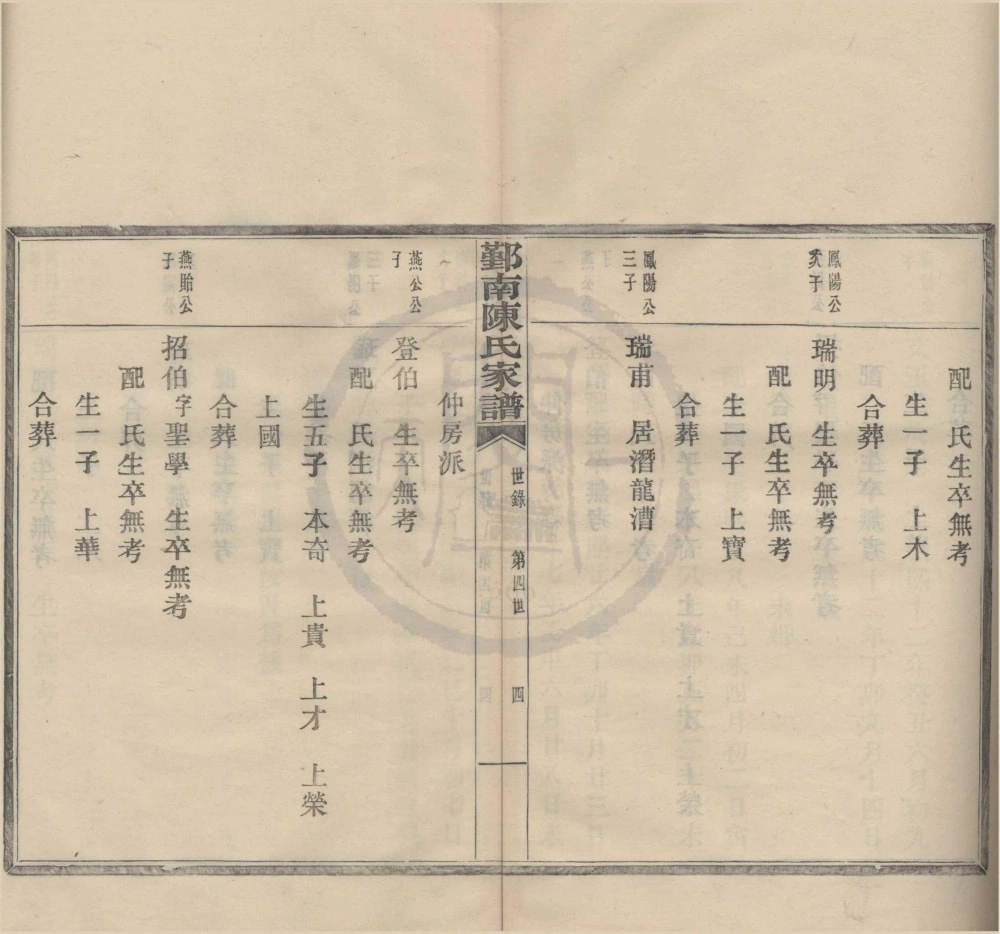 配　氏生卒無考
生一子　上木
合葬
鳳陽公
次子
瑞明　生卒無考
配　氏生卒無考
生一子　上寶
合葬
鳳陽公
三子
瑞甫　居潛龍漕
鄞南陳氏家譜
世錄　第四世　四
仲房派
燕公公
子
登伯　生卒無考
配　氏生卒無考
生五子　本奇　上貴　上才　上榮
上國
合葬
燕貽公
子
招伯字聖學　生卒無考
配　氏生卒無考
生一子　上華
合葬